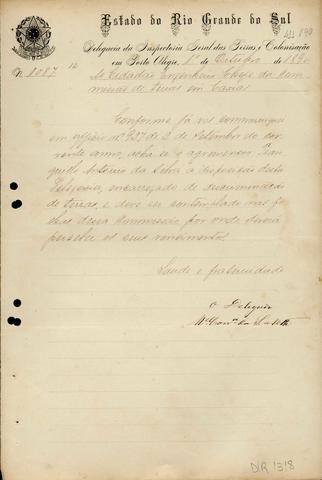 Estado do Rio Grande do Sul
Delegacia da Inspectoria Geral das Terras e Colonisação
em Porto Alegre, 1º de Outubro de 1890
N. 1087
Ao Cidadão Engenheiro Chefe da Com-
missão de terras em Caxias
Conforme já vos communiquei
em officio nº 827 de 2 de Setembro do cor-
rente anno, acha-se o agrimensor
Antonio da Silva á disposição desta
Delegacia, encarregado de discriminação
de terras, e deve ser contemplado nas fo-
lhas dessa Commissão por onde deverá
perceber os seus vencimentos.
Saude e fraternidade
O Delegado
DIR 1318